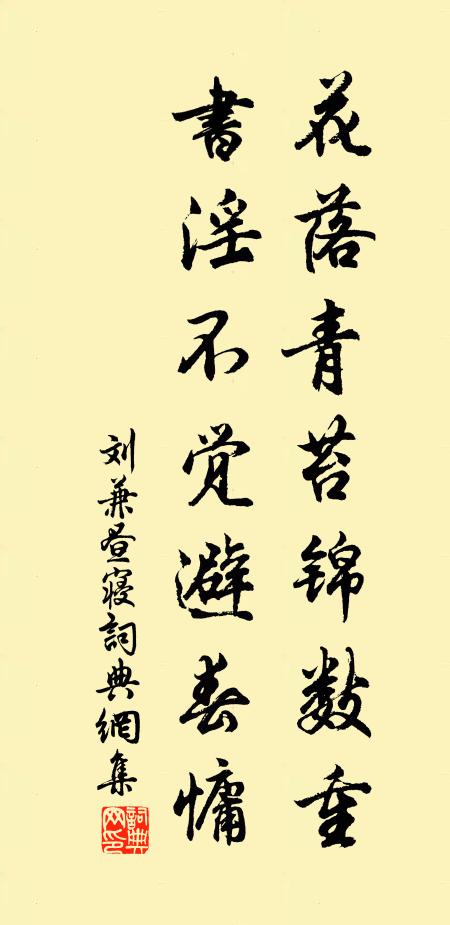 花落青苔锦数重
书淫不觉避春慵
刘兼昼寝詞典網集
詞典网印